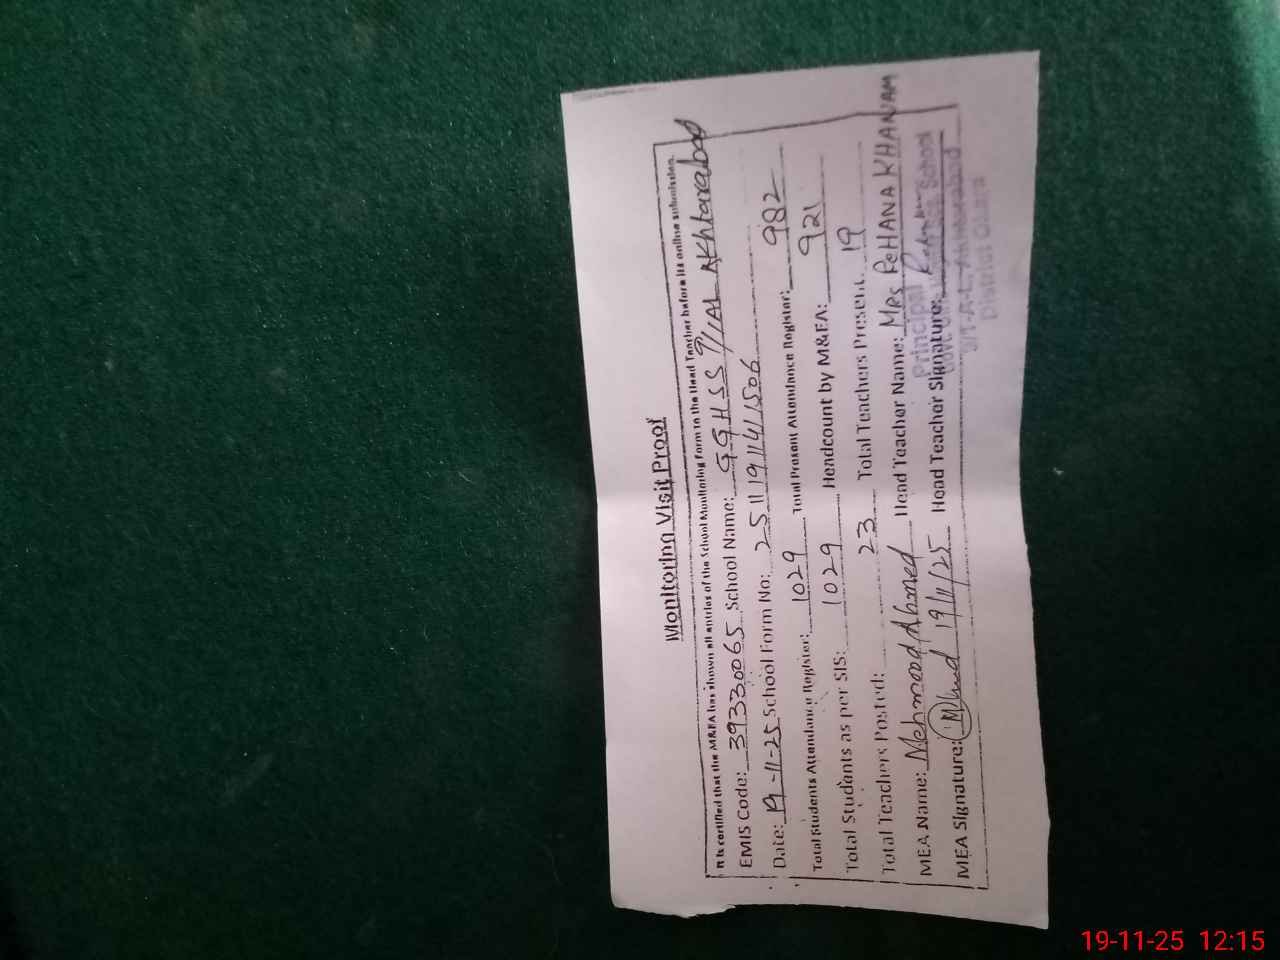 Monitoring Visit Proof
It is certified that the M&EA has shown all entries of the School Monitoring Form to the Head Teacher before its online submission.
EMIS Code: 39330065 School Name: GGHSS 9/1AL Akhtarabad
Date: 19-11-25 School Form No: 25111911411506
Total Students Attendance Register: 1029 Total Present Attendance Register: 982
Total Students as per SIS: 1029 Headcount by M&EA: 921
Total Teachers Posted: 23 Total Teachers Present. 19
MEA Name: Mehmood Ahmed Head Teacher Name: MRS REHANA KHANAM
MEA Signature: 19/11/25 Head Teacher Signature:
Principal
School
9/1-A-L, Akhtarabad
District Okara
19-11-25 12:15